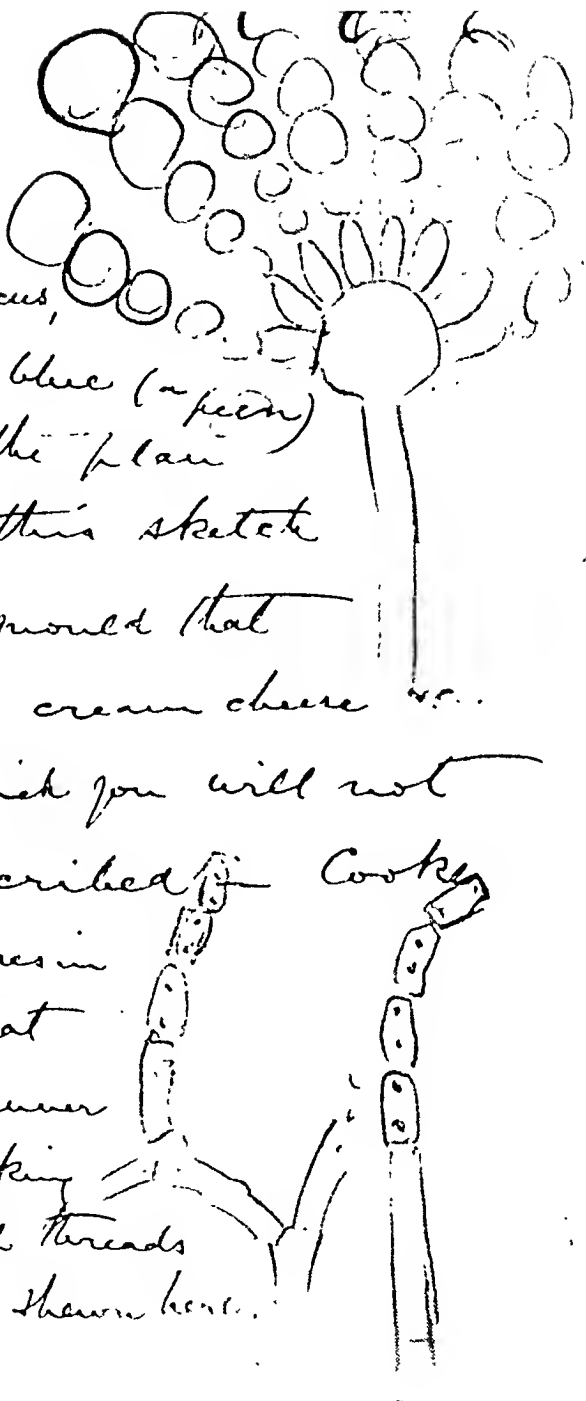 cus,
blue (or green)
the plan
this sketch
mould that
cream cheese &c..
ich you will not
cribed – Cooke
nes in
at
nner
king
threads
shewn here.